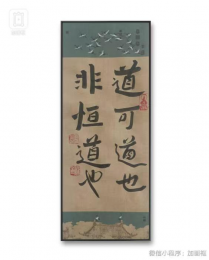 道可道也
非恒道也
微信小程序：